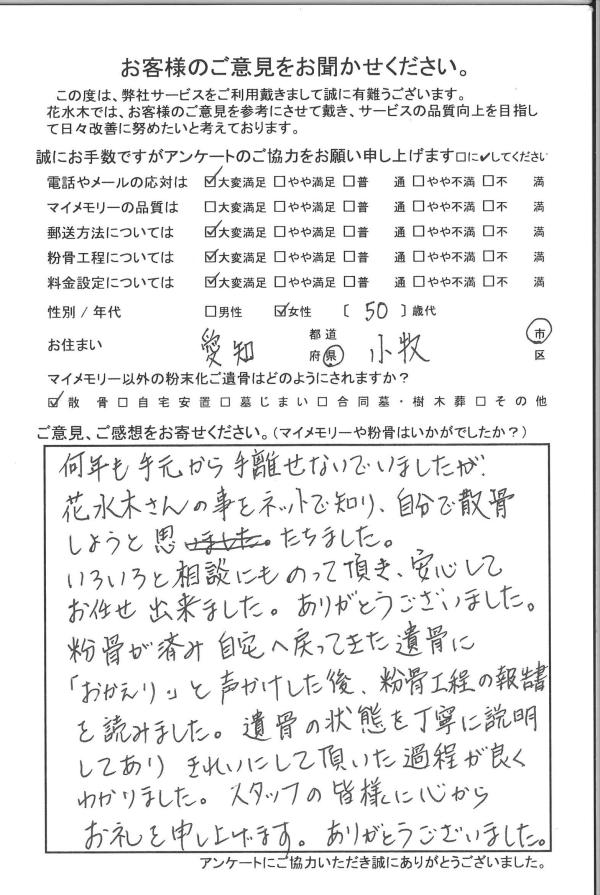 お客様のご意見をお聞かせください。
この度は、弊社サービスをご利用戴きまして誠に有難うございます。
花水木では、お客様のご意見を参考にさせて戴き、サービスの品質向上を目指し
て日々改善に努めたいと考えております。
誠にお手数ですがアンケートのご協力をお願い申し上げます□に✔してください
電話やメールの応対は ☑大変満足 □やや満足 □普 通 □やや不満 □不 満
マイメモリーの品質は □大変満足 □やや満足 □普 通 □やや不満 □不 満
郵送方法については ☑大変満足 □やや満足 □普 通 □やや不満 □不 満
粉骨工程については ☑大変満足 □やや満足 □普 通 □やや不満 □不 満
料金設定については ☑大変満足 □やや満足 □普 通 □やや不満 □不 満
性別 / 年代 □男性 ☑女性 〔 50 〕歳代
お住まい 愛知 都道府県 小牧 市区
マイメモリー以外の粉末化ご遺骨はどのようにされますか?
☑散 骨 □自宅安置 □墓じまい □合同墓・樹木葬 □その他
ご意見、ご感想をお寄せください。(マイメモリーや粉骨はいかがでしたか?)
何年も手元から手離せないでいましたが、
花水木さんの事をネットで知り、自分で散骨
しようと思いました。たちました。
いろいろと相談にものって頂き、安心して
お任せ出来ました。ありがとうございました。
粉骨が済み自宅へ戻ってきた遺骨に
「おかえり」と声かけした後、粉骨工程の報告書
を読みました。遺骨の状態を丁寧に説明
してあり きれいにして頂いた過程が良く
わかりました。スタッフの皆様に心から
お礼を申し上げます。ありがとうございました。
アンケートにご協力いただき誠にありがとうございました。